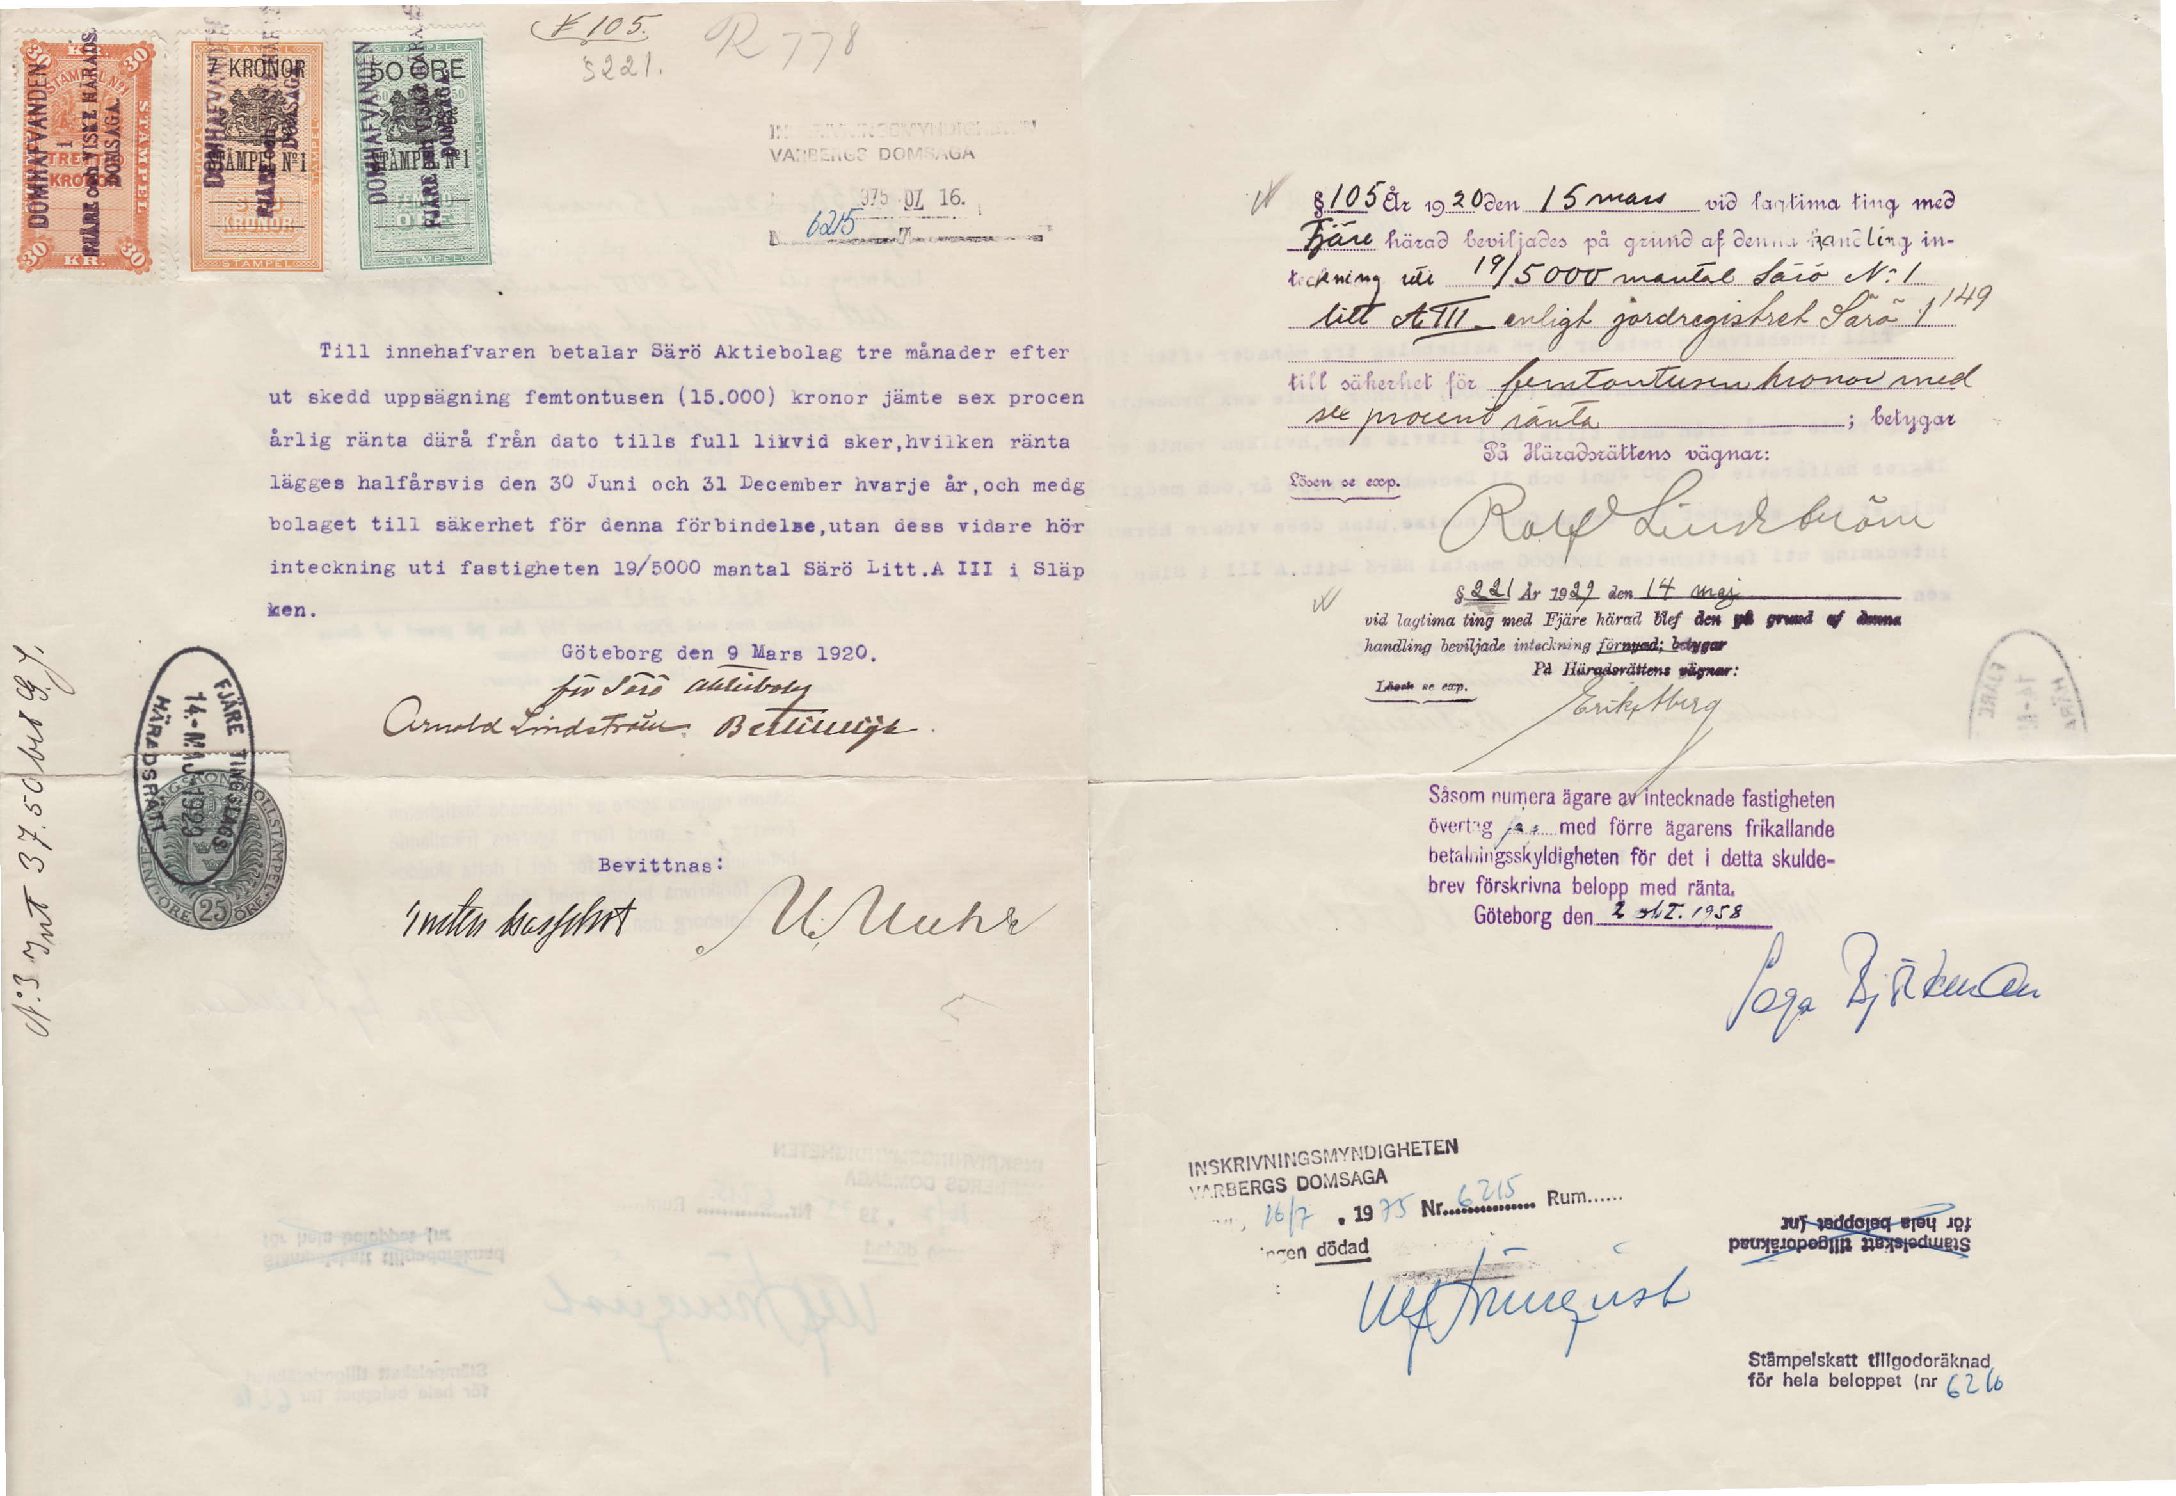 § 105.
§ 221.
R 778
30 KR. 30
STÄMPEL Nº1
STÄMPEL
1
TRETTIO
KRONOR
30 KR. 30
DOMHAFVANDEN
FJÄRE och VISKE HÄRADS
DOMSAGA.
STÄMPEL
7 KRONOR
STÄMPEL Nº1
SJU
KRONOR
STÄMPEL
DOMHAFVANDEN
FJÄRE och
DOMSAGA
STÄMPEL
50 ÖRE
STÄMPEL Nº1
FEMTIO
ÖRE
STÄMPEL
DOMHAFVANDEN
FJÄRE och VISKE HÄRADS
DOMSAGA
INSKRIVNINGSMYNDIGHETEN
VARBERGS DOMSAGA
1975 07 16.
6215
Till innehafvaren betalar Särö Aktiebolag tre månader efter
ut skedd uppsägning femtontusen (15.000) kronor jämte sex procen
årlig ränta därå från dato tills full likvid sker,hvilken ränta
lägges halfårsvis den 30 Juni och 31 December hvarje år,och medg
bolaget till säkerhet för denna förbindelse,utan dess vidare hör
inteckning uti fastigheten 19/5000 mantal Särö Litt.A III i Släp
ken.
Göteborg den 9 Mars 1920.
för Särö Aktiebolag
Arnold Lindström
FJÄRE TINGSLAGS
14.-MAJ.1929
HÄRADSRÄTT
25
ÖRE
ÖRE
Nº3 Int 37.50
Bevittnas:
§ 105 År 1920 den 15 mars vid lagtima ting med
Fjäre härad beviljades på grund af denna handling in-
teckning uti 19/5000 mantal Särö Nº 1
litt A III enligt jordregistret Särö 1 149
till säkerhet för femtontusen kronor med
sex procent ränta ; betygar
På Häradsrättens vägnar:
Lösen se exp.
Rolf Lindström
§ 221 År 1929 den 14 maj
vid lagtima ting med Fjäre härad blef den på grund af denna
handling beviljade inteckning förnyad; betygar
På Häradsrättens vägnar:
Lösen se exp.
Såsom numera ägare av intecknade fastigheten
övertag jag med förre ägarens frikallande
betalningsskyldigheten för det i detta skulde-
brev förskrivna belopp med ränta.
Göteborg den 2 okt. 1958
Saga Björkman
INSKRIVNINGSMYNDIGHETEN
VARBERGS DOMSAGA
16/7 . 1975 Nr. 6215 Rum......
dödad
Stämpelskatt tillgodoräknad
för hela beloppet (nr
Stämpelskatt tillgodoräknad
för hela beloppet (nr 6216